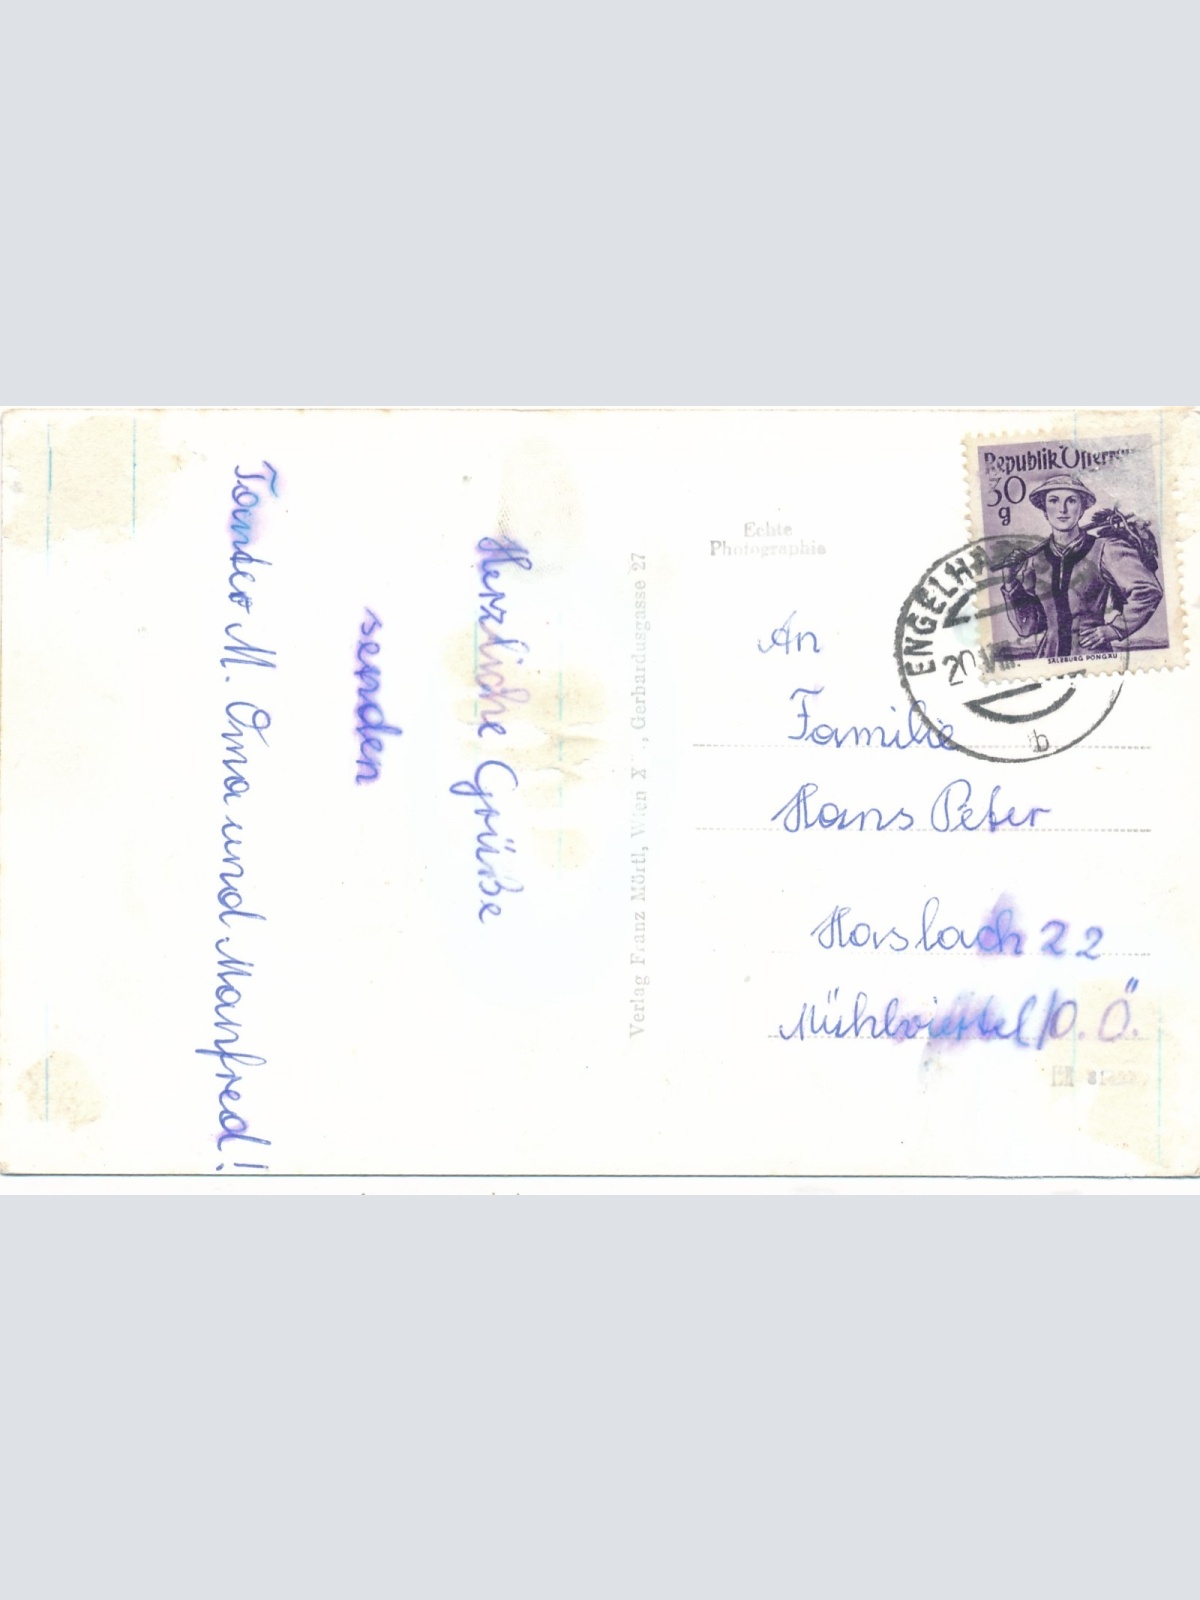 Herzliche Grüße
senden
Tante M. Oma und Manfred!
Verlag Franz Mörtl, Wien X , Gerhardusgasse 27
Echte
Photographie
Republik
30
g
SALZBURG PONGAU
20. VIII.
b
An
Familie
Hans Peter
Haslach 22
Mühlviertel/O. Ö.